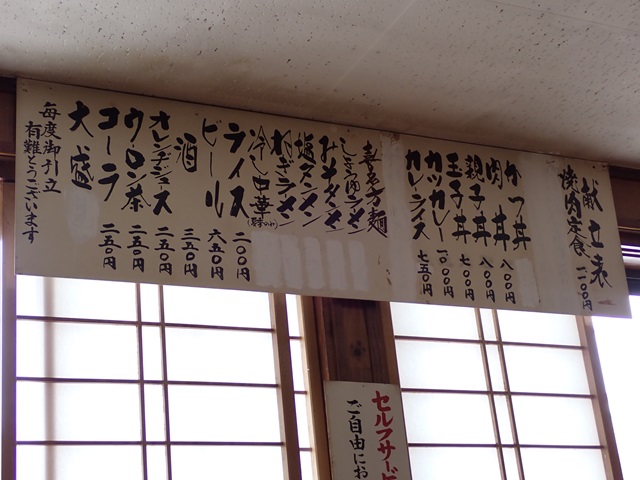 献立表
焼肉定食 一一〇〇円
かつ丼
肉丼 八〇〇円
親子丼 八〇〇円
玉子丼 七〇〇円
カツカレー 一〇〇〇円
カレーライス 七五〇円
喜多方麺
しょうゆラーメン
みそラーメン
塩ラーメン
ねぎラーメン
冷し中華
ライス 二〇〇円
ビール 六五〇円
酒 三五〇円
オレンヂジュース 二五〇円
ウーロン茶 二五〇円
コーラ 二五〇円
大盛
毎度御引立
有難とうございます
セルフサービ
ご自由にお